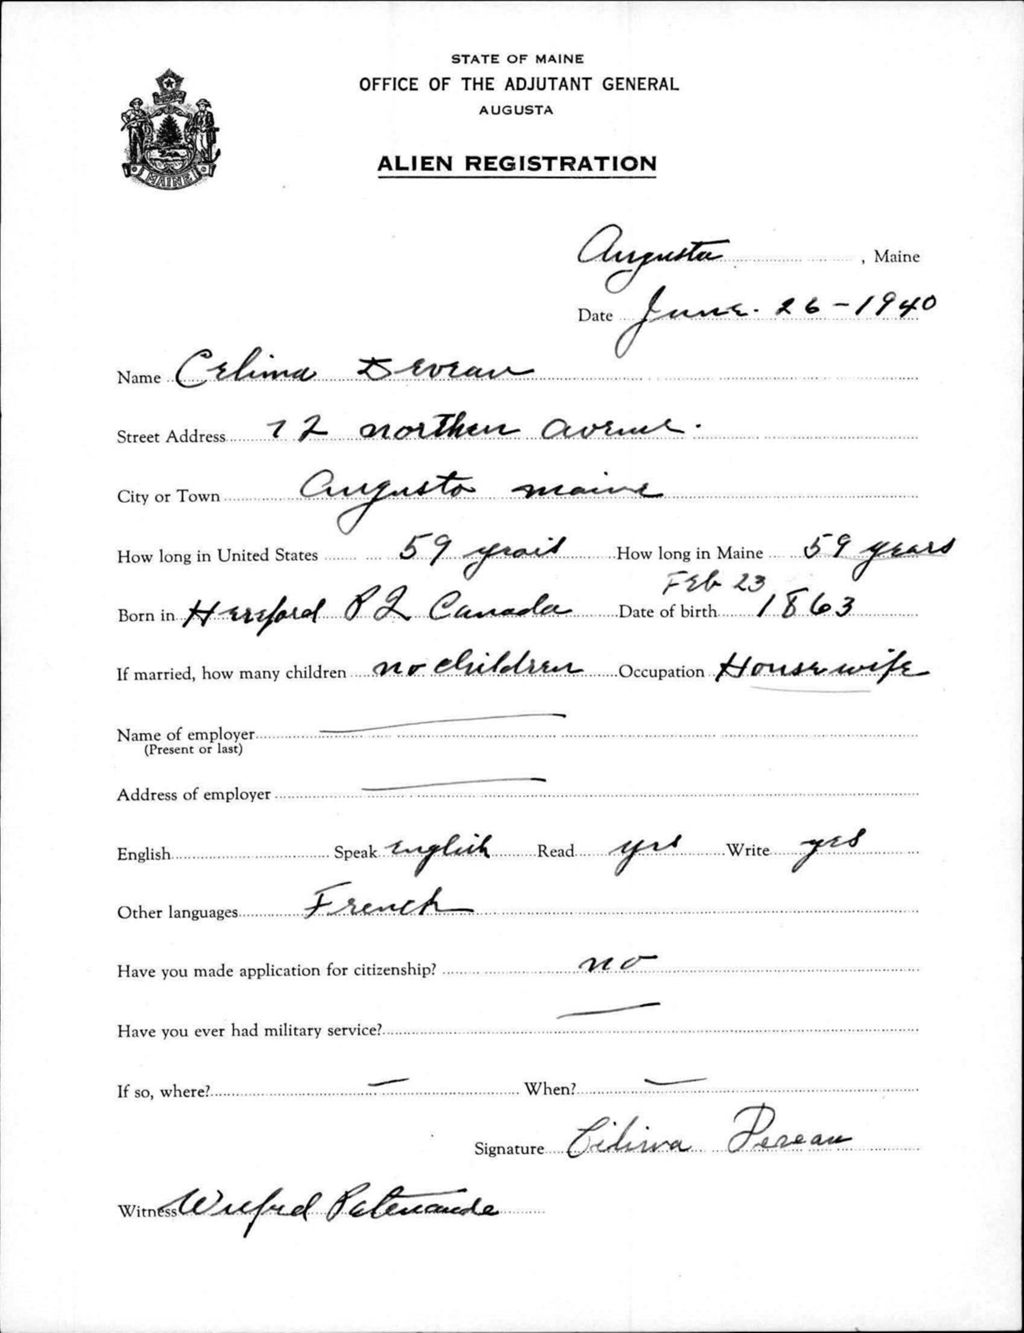 STATE OF MAINE
OFFICE OF THE ADJUTANT GENERAL
AUGUSTA
ALIEN REGISTRATION
MAINE
Augusta, Maine
Date June. 26-1940
Name Celima Deveau
Street Address 72 northern avenue.
City or Town Augusta maine
How long in United States 59 years How long in Maine 59 years
Feb 23
Born in Hereford P Q Canada Date of birth 1863
If married, how many children no children Occupation Housewife
Name of employer
(Present or last)
Address of employer
English Speak English Read yes Write yes
Other languages French
Have you made application for citizenship? no
Have you ever had military service? —
If so, where? — When? —
Signature Celima Deveau
Witness Wilfred Patenaude